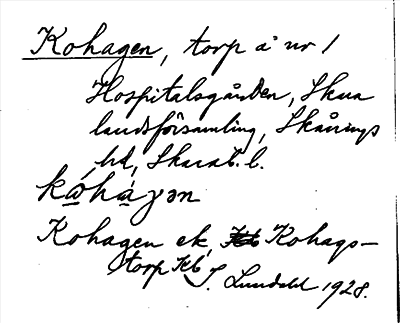 Kohagen, torp å nr 1
Hospitalsgården, Skara
landsförsamling, Skånings
hd, Skarab. l.
kωhàɣən
Kohagen ek, Kohags-
torp Kb
S. Lundahl 1928.